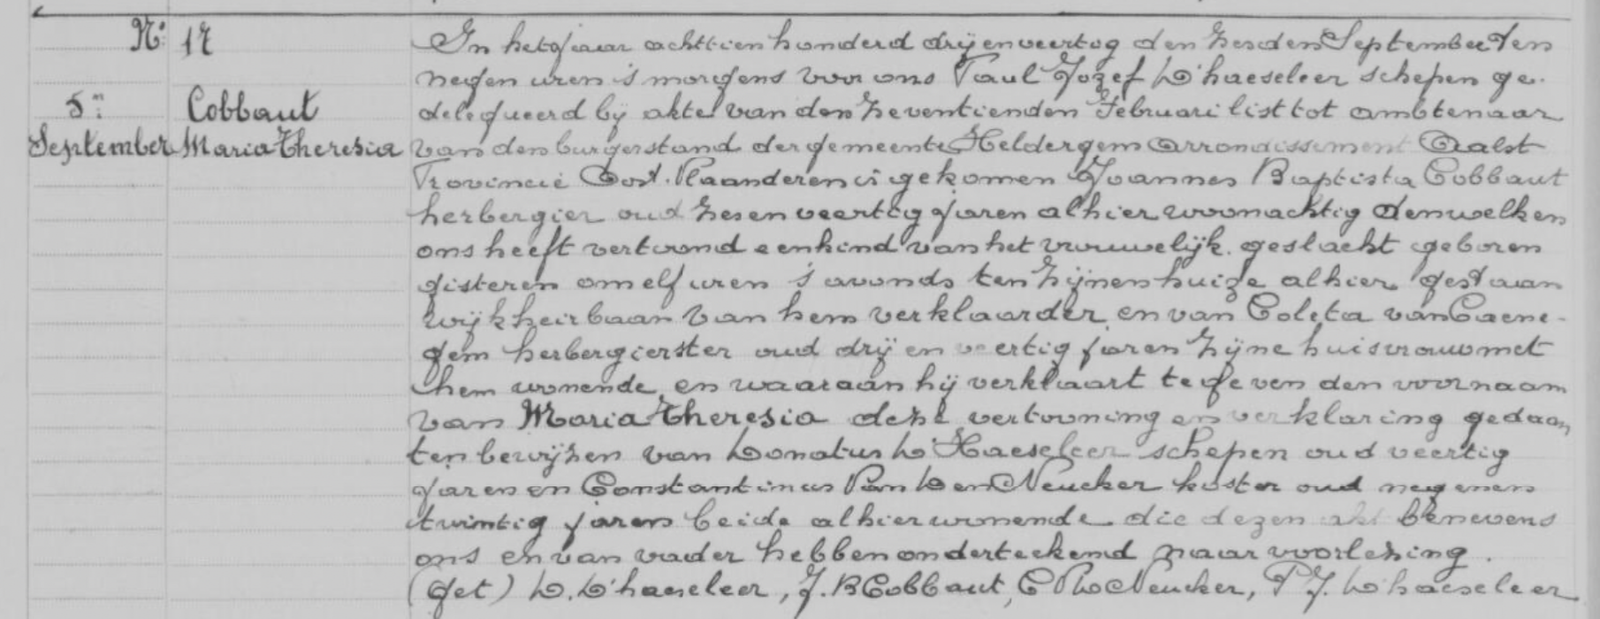 No 17
5n
September
Cobbaut
Maria Theresia
In het jaar achttien honderd drij en veertog den zesden September ten
negen uren 's morgens voor ons Paul Jozef D'haeseleer schepen ge-
delequeerd bij akte van den zeventienden Februari list tot ambtenaar
van den burgerstand der gemeente Heldergem arrondissement Aalst
Provincie Oost. Vlaanderen is gekomen Joannes Baptista Cobbaut
herbergier oud zes en veertig jaren alhier woonachtig denwelken
ons heeft vertoond een kind van het vrouwelijk. geslacht geboren
gisteren om elf uren 's avonds ten zijnen huize alhier gestaan
wijk heirbaan van hem verklaarder en van Coleta van Caene-
gem herbergierster oud drij en veertig jaren zijne huisvrouw met
hem wonende en waaraan hij verklaart te geven den voornaam
van Maria Theresia deze vertooning en verklaring gedaan
ten bewijzen van Donatus D'Haeseleer schepen oud veertig
jaren en Constantinus Van Den Neucker koster oud negen en
twintig jaren beide alhier wonende die dezen akt benevens
ons en van vader hebben onderteekend naar voorlezing.
(get) D. D'haeseleer, J. B Cobbaut, C VDNeucker, P J. D'haeseleer